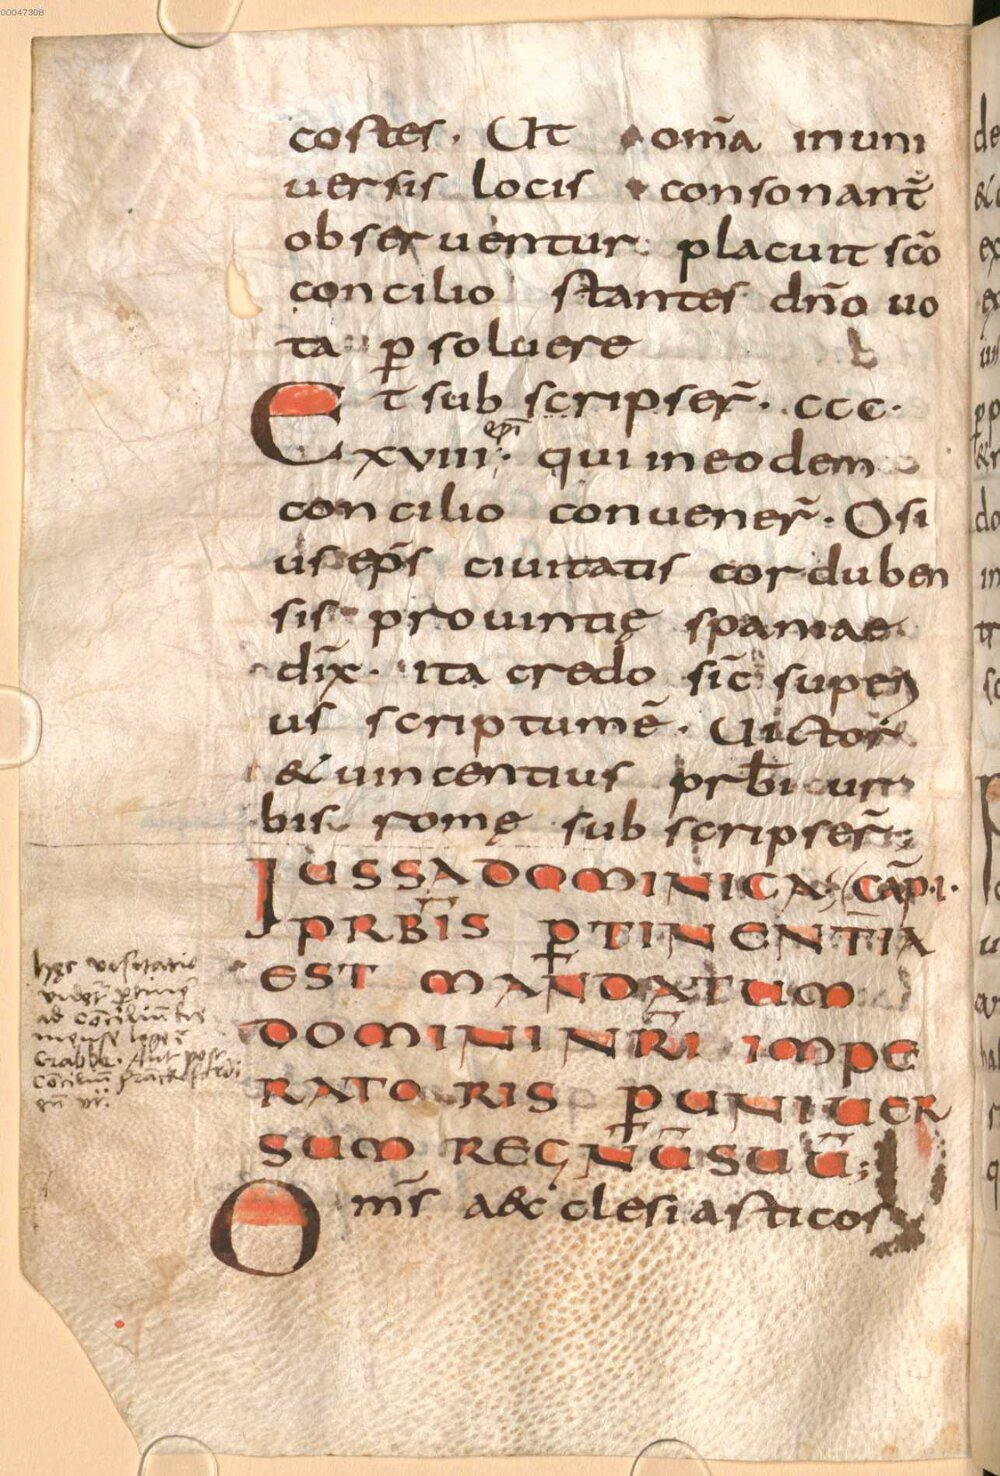 0004730B
costes. Ut om̄a inuni
uersis locis consonant̄
obseruentur. placuit sc̄o
concilio stantes dn̄o uo
ta ꝑsoluere
b
Et subscripser̄. ccc.
xviii. ep̄i qui in eodem
concilio conuener̄. Osi
us ep̄s ciuitatis corduben
sis prouintię spaniae
dix̄. ita credo sic̄ superi
us scriptum ē. Uictor
& uincentius prb̄i ur
bis romę subscripser̄;
IUSSA DOMINICA; CAP̄.I.
PRB̄IS ꝐTINENTIA
EST MANDATUM
DOMINI NR̄I IMPE
RATORIS Ꝑ UNIUER
SUM REGNŪ SUŪ;
Om̄s aecclesiasticos
hęc visitatio
ad conciliū